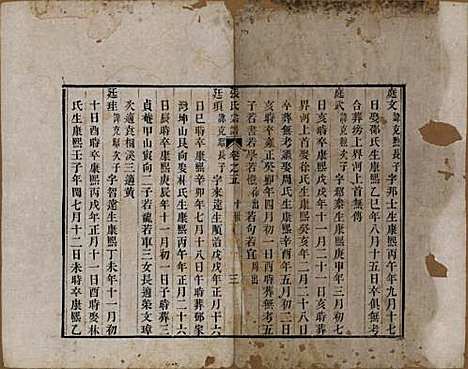 庭文諱克熙長子字邦士生康熙丙午年九月十七
日娶邵氏生康熙乙巳年八月十五日卒俱無考
合葬坊上界河上首無傳
庭武諱克 次子字 生康熙庚申年三月初七
日亥時卒康熙戊戌年十一月二十日亥時葬
坊上界河上首娶徐氏生康熙癸亥年二月二十八日亥時
卒葬無考續娶周氏生康熙辛酉年五月初二日
亥時卒雍正癸卯年四月初一日亥時葬無考五
子若書若學若 若 若 出
張氏宗譜 卷之五 三
廷瑣諱克 長子字來遠生順治戊戌年正月十六
日巳時卒康熙辛卯年七月十八日午時葬鄧家
灣坤山艮向娶林氏生康熙丙午年正月二十六
日辰時卒康熙庚辰年十一月初一日子時葬
貞菴甲山寅向二子若龍若車三女長適榮文璋
次適袁相 三適黃
廷珪諱克 次子字 生康熙丁未年十一月初
十日酉時卒康熙丙戌年正月十一日酉時娶林
氏生康熙壬子年閏七月十二日未時卒康熙乙